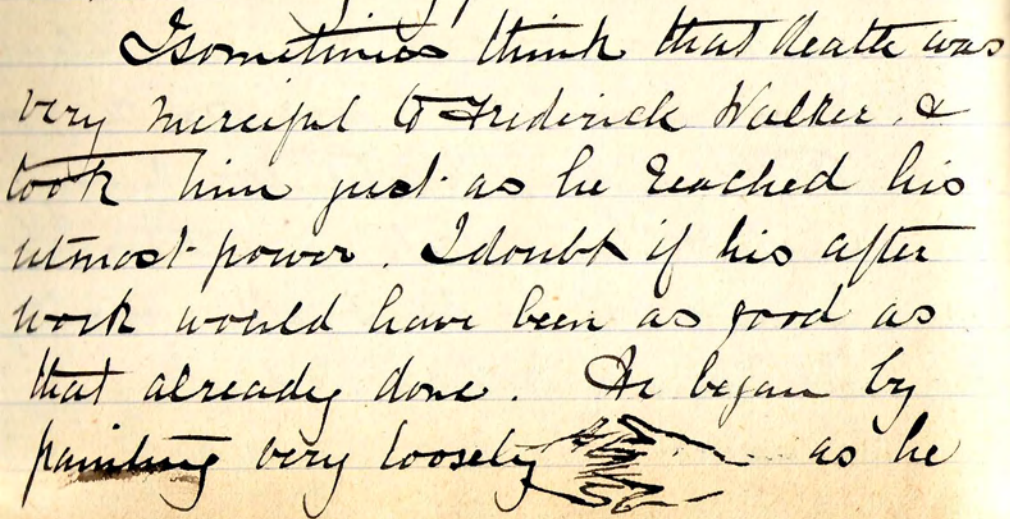 I sometimes think that death was
very merciful to Frederick Walker, &
took him just as he reached his
utmost power. I doubt if his after
work would have been as good as
that already done. He began by
painting very loosely as he